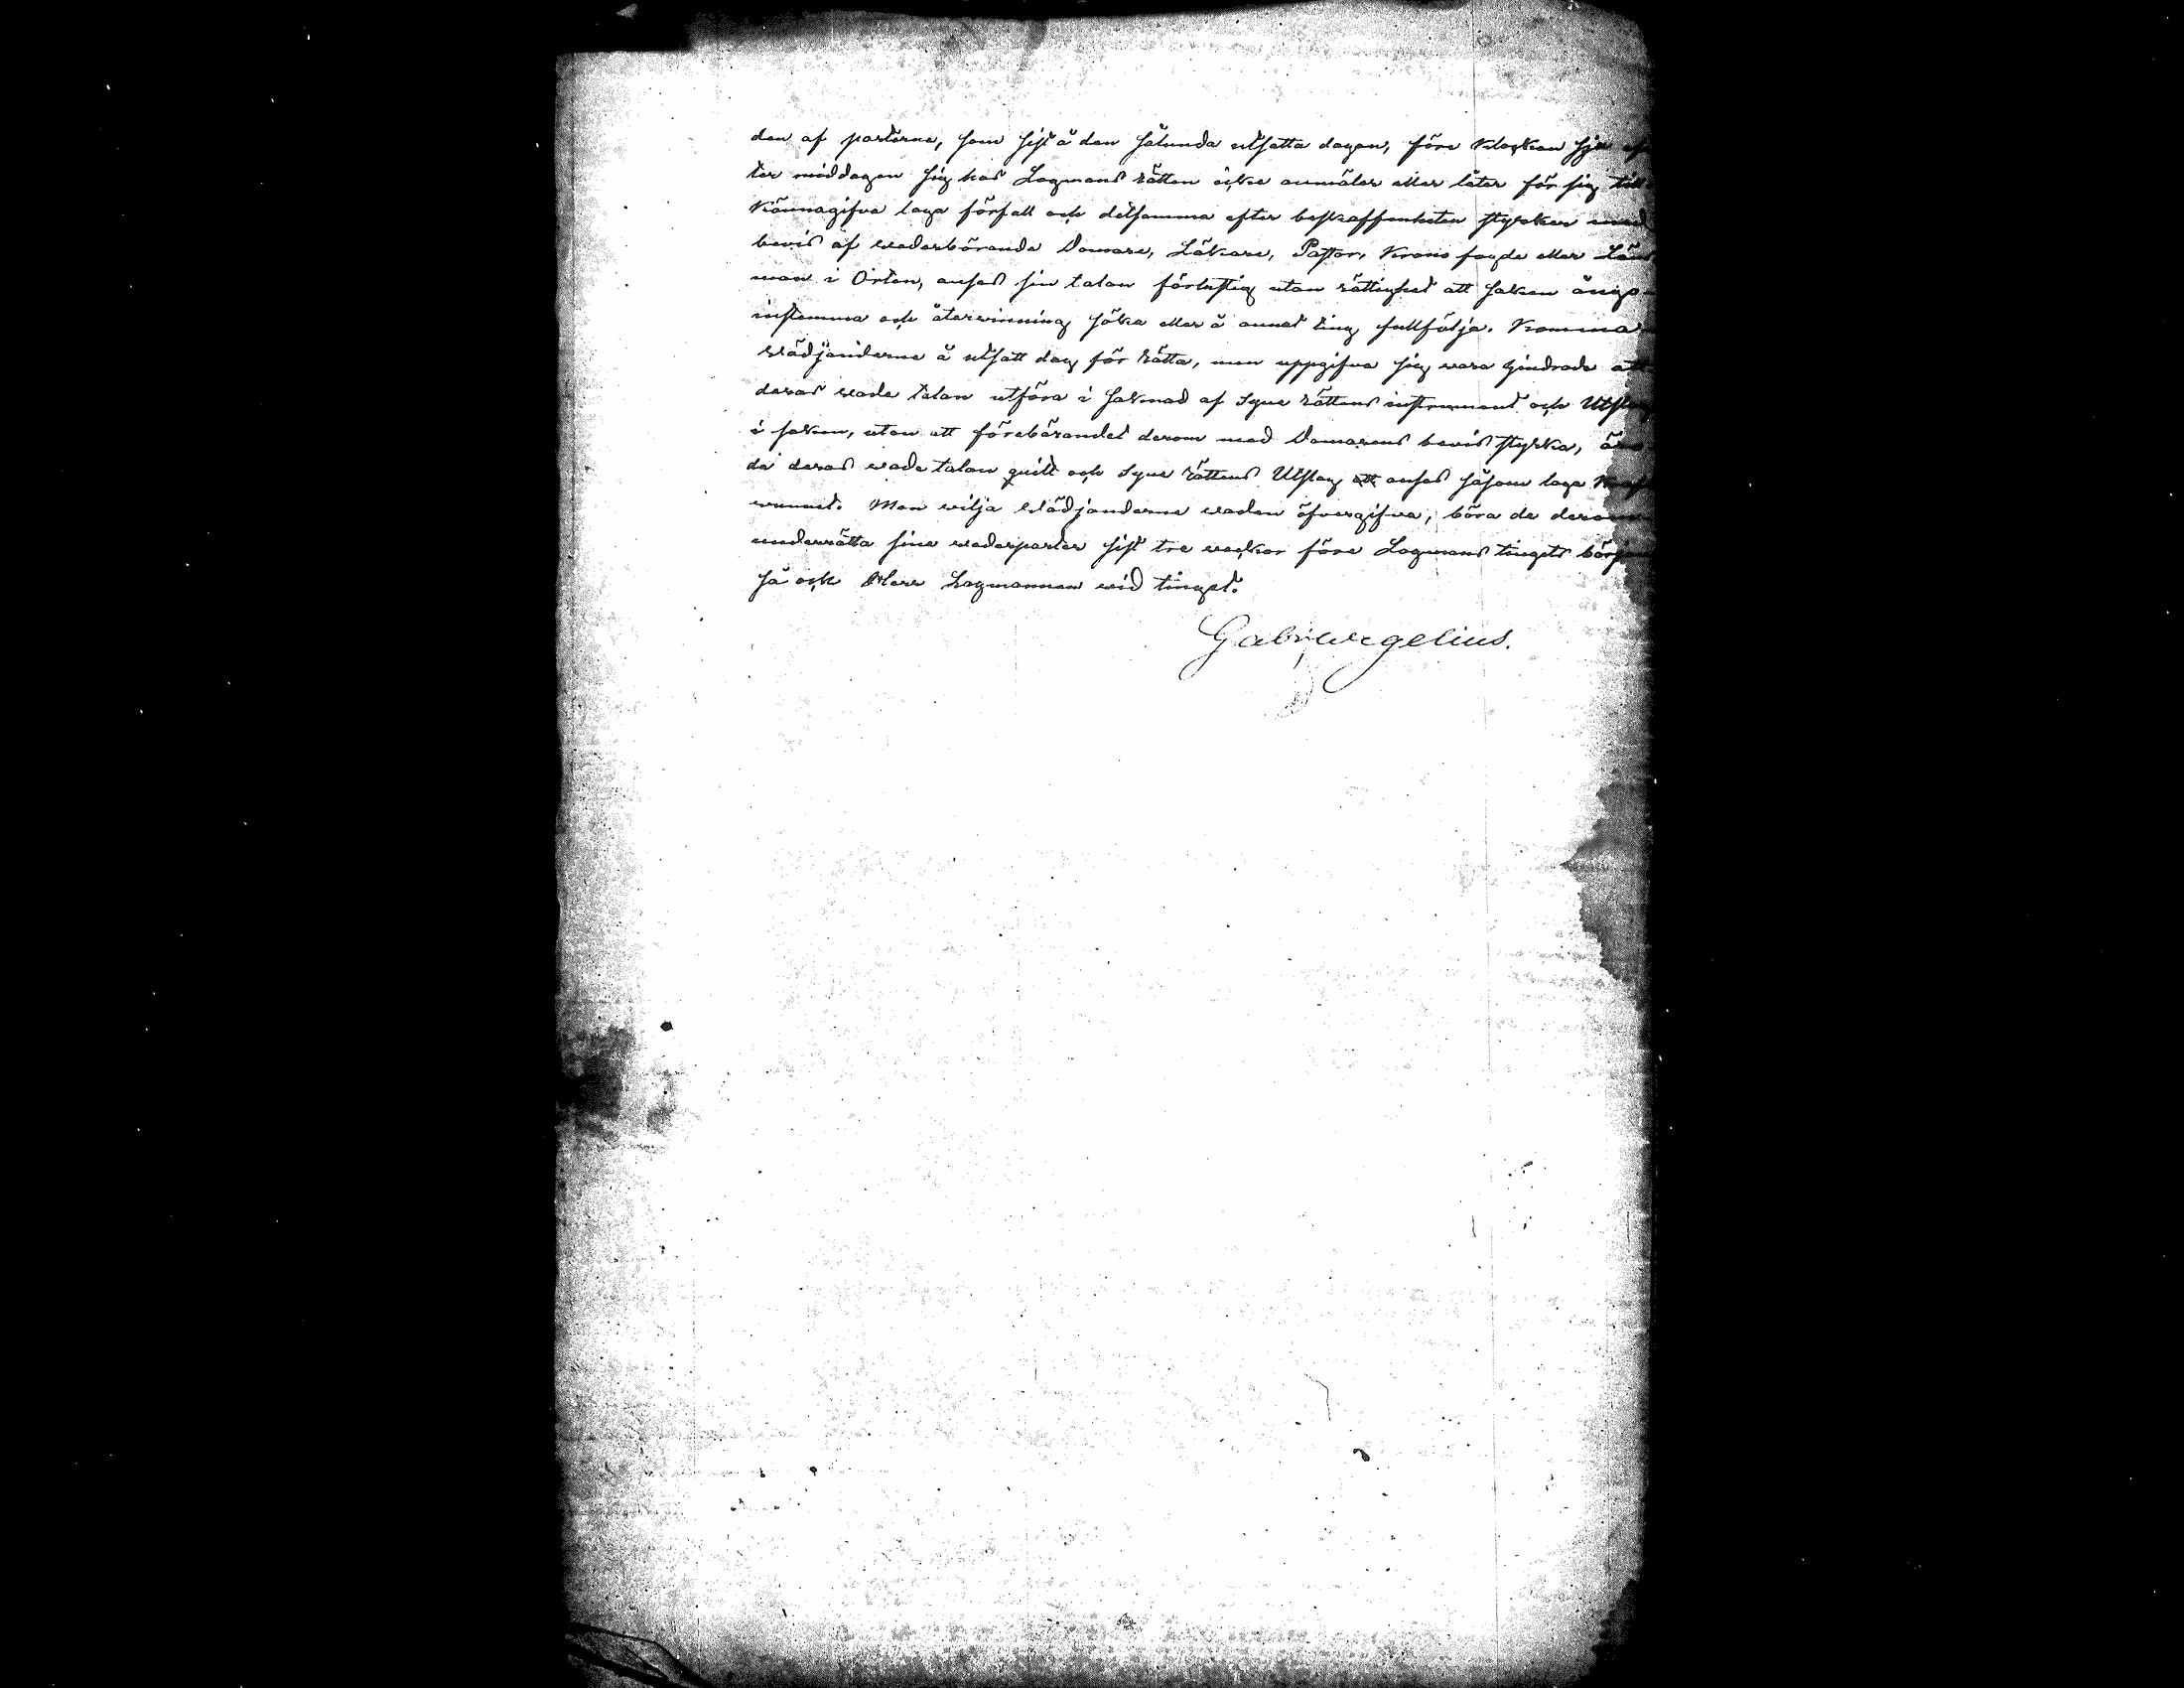 den af parterne, som sist å den sålunda utsatta dagen, före klockan sju ef
ter middagen sig hos Lagmans rätten icke anmäler eller låter för sig till
kännagifva laga förfall och detsamma efter beskaffenheten styrker med
bevis af wederbörande Domare, Läkare, Pastor, Krono fogde eller Läns
man i Orten, anses sin talan förlustig utan rättighet att saken ånyo
instemma och återwinning söka eller å annat ting fullfölja. Komma
Wädjanderne å utsatt dag för Rätta, men uppgifva sig vara hindrade att
deras wade talan utföra i saknad af Syne Rättens instrument och Utslag
i saken, utan att förebärandet derom med Domarens bevis styrka, äre
då deras wade talan quitt och Syne Rättens Utslag anses såsom laga kraft
wunnet. Men wilja Wädjanderne waden öfvergifva, böra de derom
underrätta sine wederparter sist tre weckor före Lagmans tingets början
så ock Herr Lagmannen wid tinget.
Gabr. Wegelius.